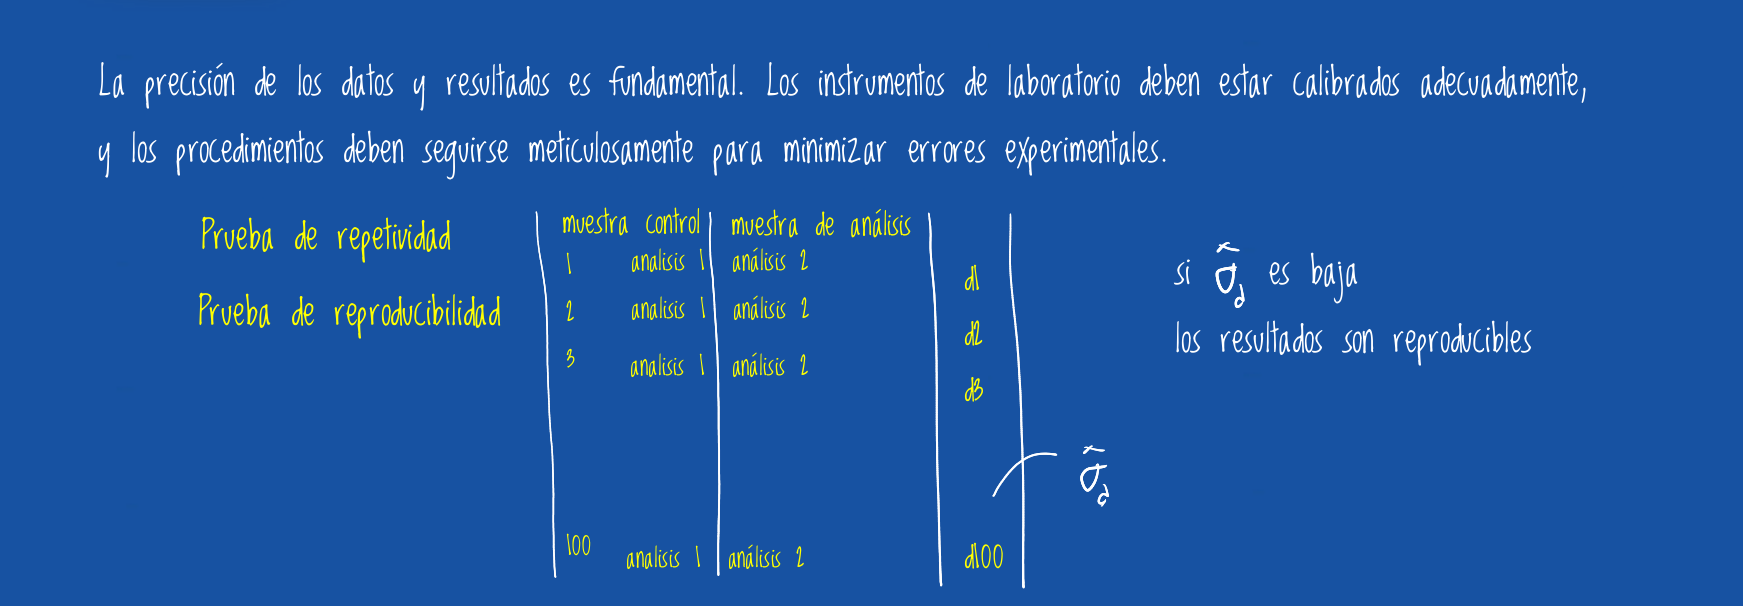 La precisión de los datos y resultados es fundamental. Los instrumentos de laboratorio deben estar calibrados adecuadamente,
y los procedimientos deben seguirse meticulosamente para minimizar errores experimentales.
Prueba de repetividad
Prueba de reproducibilidad
muestra control muestra de análisis
1 analisis 1 análisis 2 d1
2 analisis 1 análisis 2 d2
3 analisis 1 análisis 2 d3
100 analisis 1 análisis 2 d100
σ̂d
si σ̂d es baja
los resultados son reproducibles